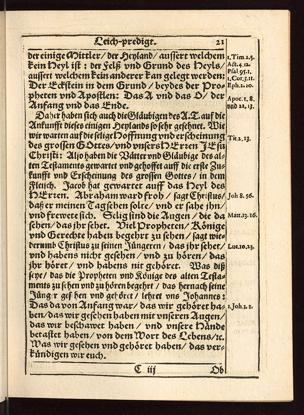 Leich-predigt. 21
der einige Mittler/ der Heyland/ aussert welchem
kein Heyl ist: der Felß und Grund des Heyls/
aussert welchem kein anderer kan gelegt werden:
Der Eckstein in dem Grund/ beydes der Pro-
pheten und Apostlen: Das A und das O/ der
Anfang und das Ende.
Daher haben sich auch die Gläubigen des A.T. auf die
Ankunfft dieses einigen Heylands so sehr gesehnet. Wie
wir warten auf die selige Hoffnung und erscheinung
des grossen Gottes/ und unsers HErren JEsu
Christi: Also haben die Vätter und Gläubige des al-
ten Testaments gewartet und gehoffet auff die erste Zu-
kunfft und Erscheinung des grossen Gottes/ in dem
Fleisch. Jacob hat gewartet auff das Heyl des
HErren. Abraham ward froh/ sagt Christus/
daß er meinen Tag sehen solte/ und er sahe ihn/
und frewete sich. Selig sind die Augen/ die da
sehen/ das jhr sehet. Viel Propheten/ Könige
und Gerechte haben begehrt zu sehen/ sagt wie-
derumb Christus zu seinen Jüngeren/ das jhr sehet/
und habens nicht gesehen/ und zu hören/ das
jhr höret/ und habens nit gehöret. Was diß
seye/ das die Propheten und Könige des alten Testa-
ments zu sehen und zu hören begehrt/ das hernach seine
Jünger gesehen und gehöret/ lehret uns Johannes:
Das da von Anfang war/ das wir gehöret ha-
ben/ das wir gesehen haben mit unseren Augen/
das wir beschawet haben/ und unsere Hände
betastet haben/ von dem Wort des Lebens/ etc.
Was wir gesehen und gehöret haben/ das ver-
kündigen wir euch.
C iij Ob
1. Tim 2.5.
Act. 4.12.
Psal. 95.1.
1. Cor. 3.11.
Eph. 2.20.
Apoc. 1, 8.
und 22, 13.
Tit. 2.13.
Joh 8.56.
Matt. 13.16.
Luc. 10.23.
1. Joh. 1.1.